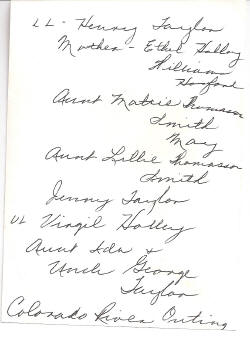 LL - Henry Taylor
Mother - Ethel Holley
William
Aunt Mattie Thomasson
Smith
May
Aunt Lillie Thomasson
Smith
Jenny Taylor
UL Virgil Holley
Aunt Ida &
Uncle George
Taylor
Colorado River Outing